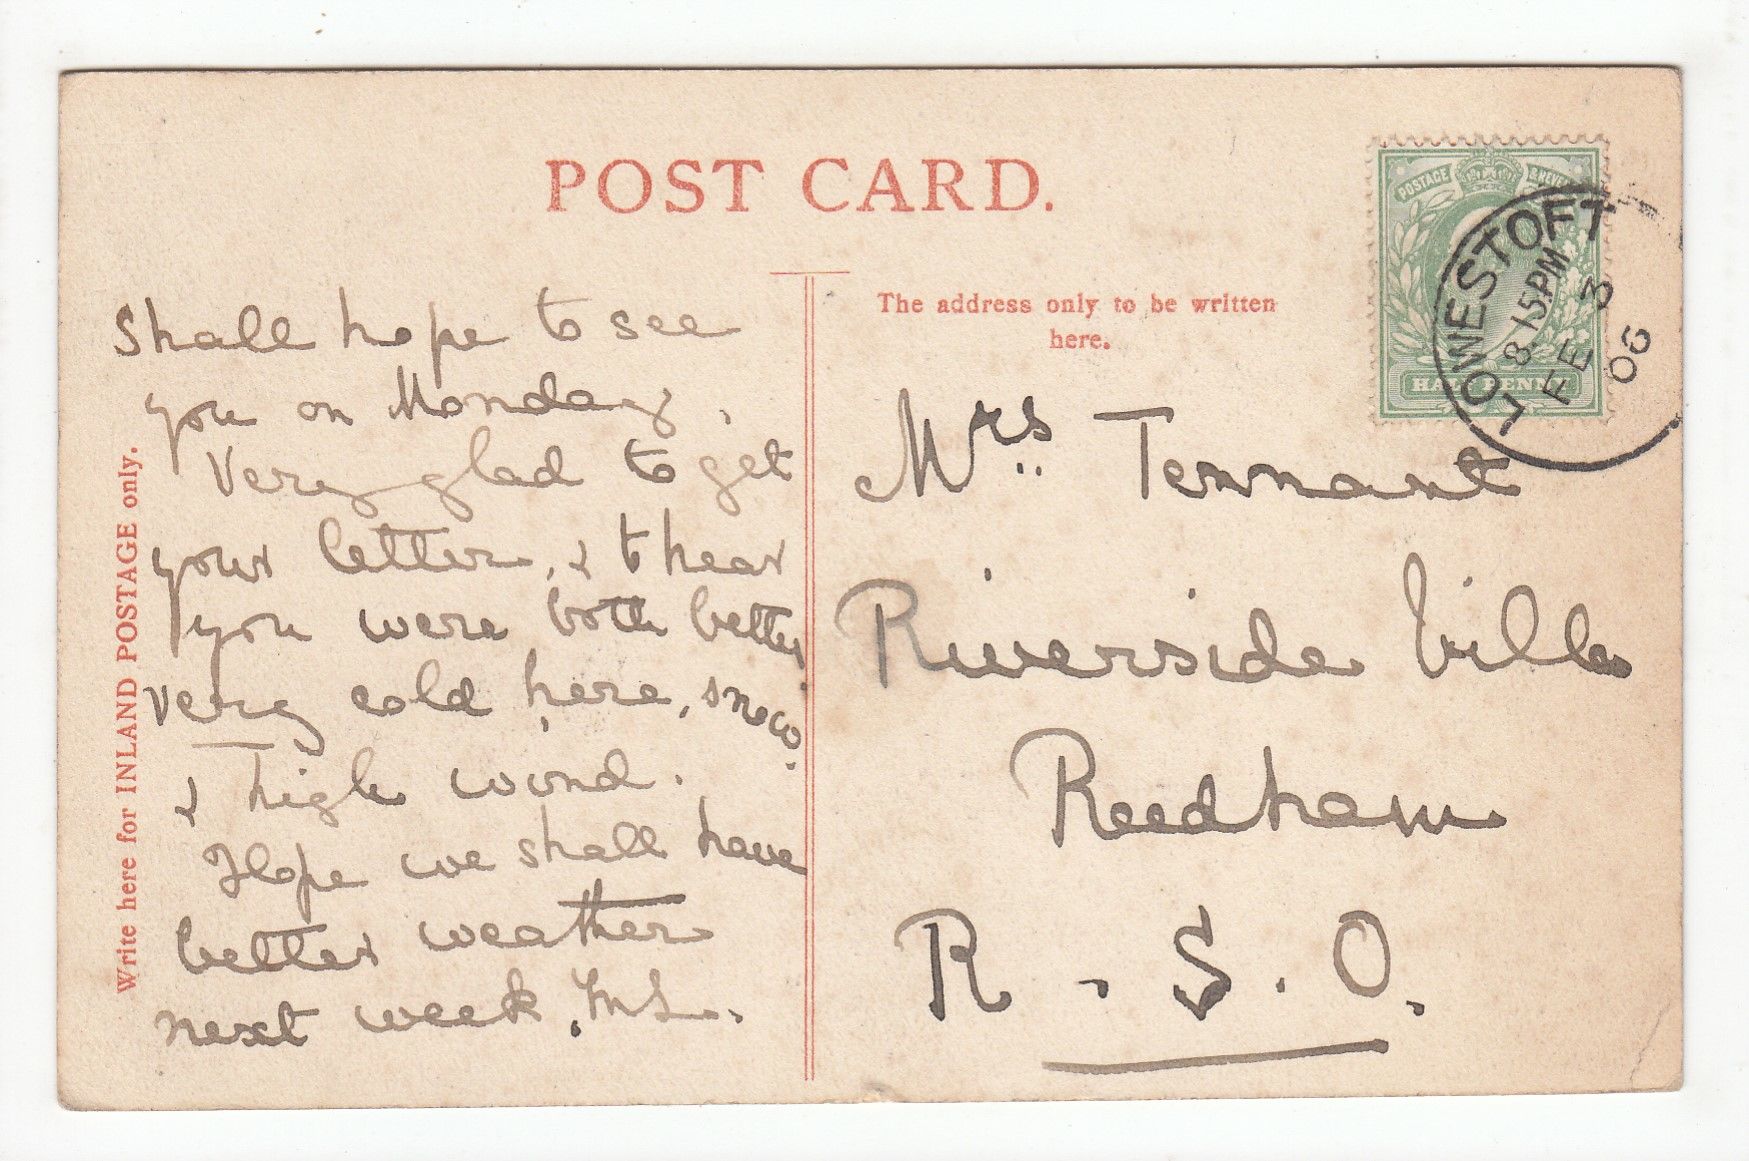 POST CARD.
Write here for INLAND POSTAGE only.
The address only to be written
here.
POSTAGE & REVE
HALF PENNY
LOWESTOFT
8.15PM
FE 3
06
Shall hope to see
you on Monday.
Very glad to get
your letter, & t hear
you were both better
very cold here, snow
& high wind.
Hope we shall have
better weather
next week.
Mrs Tennant
Riverside Villa
Reedham
R. S. O.